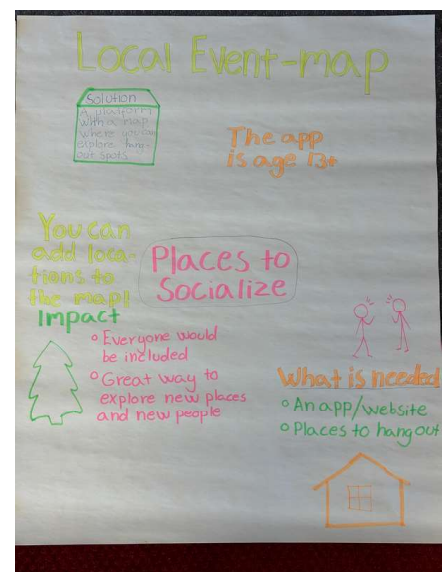 Local Event-map
Solution
A platform
with a map
where you can
explore hang-
out spots
The app
is age 13+
You can
add loca-
tions to
the map!
Places to
Socialize
Impact
° Everyone would
be included
° Great way to
explore new places
and new people
What is needed
° An app/website
° Places to hangout